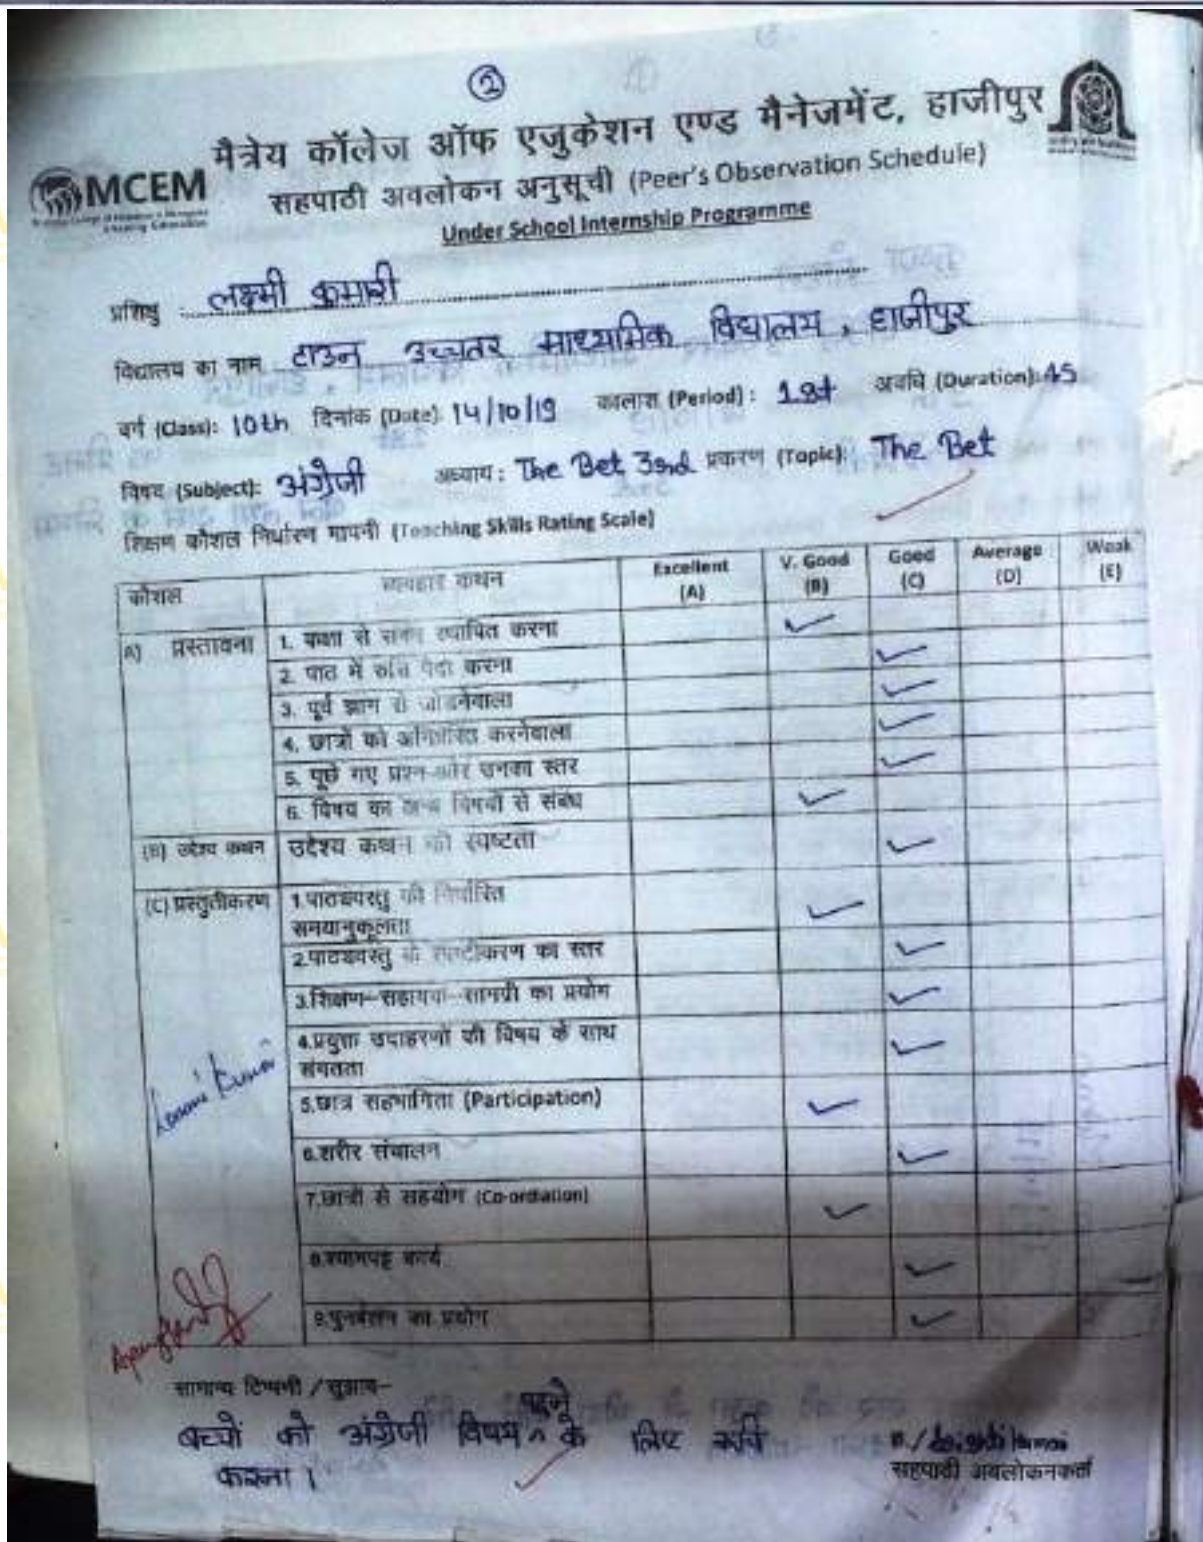 ②
मैत्रेय कॉलेज ऑफ एजुकेशन एण्ड मैनेजमेंट, हाजीपुर
MCEM
सहपाठी अवलोकन अनुसूची (Peer's Observation Schedule)
Under School Internship Programme
प्रशिक्षु लक्ष्मी कुमारी
विद्यालय का नाम टाउन उच्चतर माध्यमिक विद्यालय, हाजीपुर
वर्ग (Class): 10th दिनांक (Date): 14/10/19 कालाश (Period): 1st अवधि (Duration): 45
विषय (Subject): अंग्रेजी अध्याय: The Bet 3rd प्रकरण (Topic): The Bet
शिक्षण कौशल निर्धारण मापनी (Teaching Skills Rating Scale)
कौशल व्यवहार कथन Excellent (A) V. Good (B) Good (C) Average (D) Weak (E)
A) प्रस्तावना 1. कक्षा से संबंध स्थापित करना ✓
2. पाठ में रुचि पैदा करना ✓
3. पूर्व ज्ञान से जोडनेवाला ✓
4. छात्रों को अभिप्रेरित करनेवाला ✓
5. पूछे गए प्रश्न और उनका स्तर ✓
6. विषय का अन्य विषयों से संबंध ✓
(B) उद्देश्य कथन उद्देश्य कथन की स्पष्टता ✓
(C) प्रस्तुतीकरण 1.पाठ्यवस्तु की निर्धारित
समयानुकूलता ✓
2.पाठ्यवस्तु के स्पष्टीकरण का स्तर ✓
3.शिक्षण-सहायक-सामग्री का प्रयोग ✓
4.प्रयुक्त उदाहरणों की विषय के साथ
संगतता ✓
5.छात्र सहभागिता (Participation) ✓
6.शरीर संचालन ✓
7.छात्रों से सहयोग (Co-ordiation) ✓
8.श्यामपट्ट कार्य ✓
9.पुनर्बलन का प्रयोग ✓
सामान्य टिप्पणी / सुझाव-
बच्चों को अंग्रेजी विषय पढ़ने के लिए रूचि
करना।
सहपाठी अवलोकनकर्ता